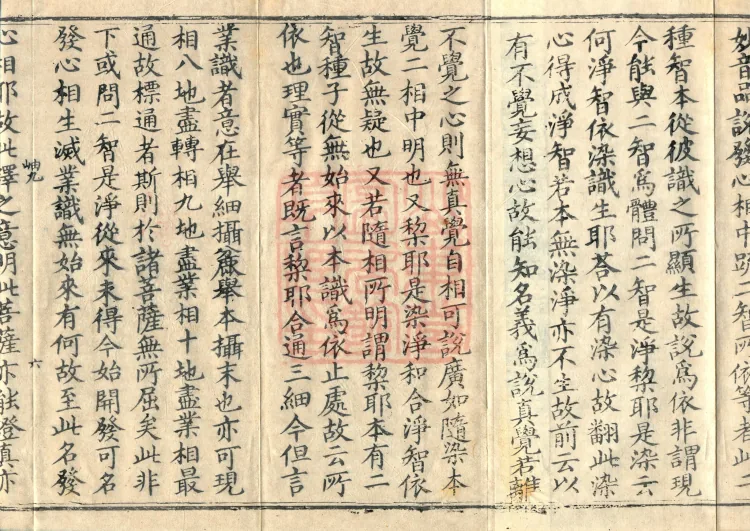 妙音品說發心相中疏二智所依等者此二
種智本從彼識之所顯生故說爲依非謂現
今能與二智爲體問二智是淨黎耶是染云
何淨智依染識生耶荅以有染心故翻此染
心得成淨智若本無染淨亦不生故前云以
有不覺妄想心故能知名義爲說真覺若離
不覺之心則無真覺自相可說廣如隨染本
覺二相中明也又黎耶是染淨和合淨智依
生故無疑也又若隨相所明謂黎耶本有二
智種子從無始來以本識爲依止處故云所
依也理實等者既言黎耶合通三細今但言
業識者意在舉細攝麁舉本攝末也亦可現
相八地盡轉相九地盡業相十地盡業相最
通故標通者斯則於諸菩薩無所屈矣此非
下或問二智是淨從來未得今始開發可名
發心相生滅業識無始來有何故至此名發
六
心相耶故此釋之意明此菩薩亦能證真亦